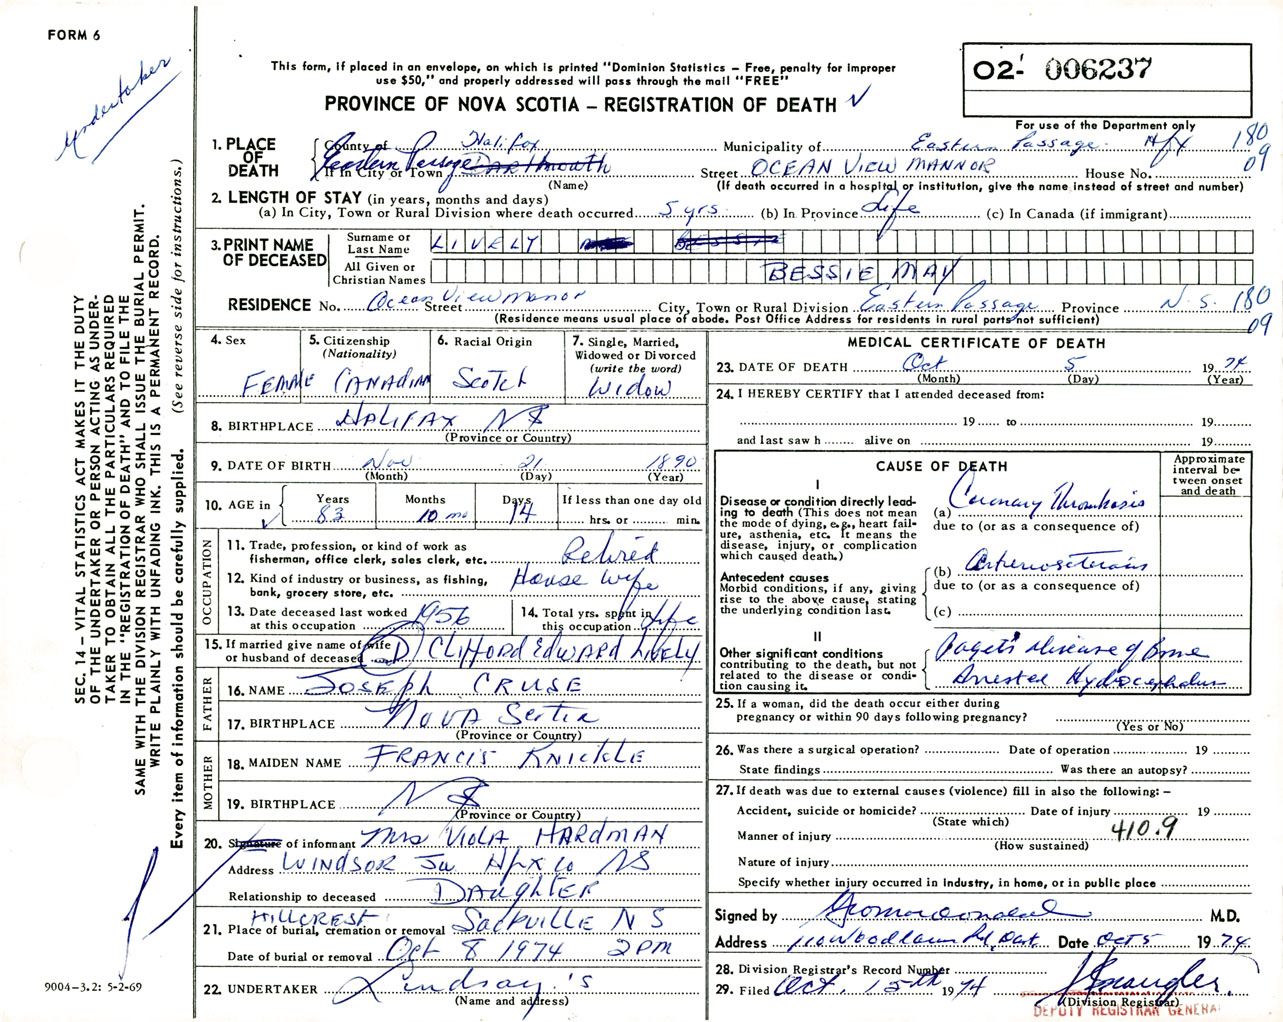 FORM 6
Undertaker
This form, if placed in an envelope, on which is printed "Dominion Statistics – Free, penalty for improper
use $50," and properly addressed will pass through the mail "FREE"
PROVINCE OF NOVA SCOTIA – REGISTRATION OF DEATH
02- 006237
For use of the Department only
1. PLACE OF DEATH
County of Halifax Municipality of Eastern Passage Hfx 180
If in City or Town Eastern Passage Dartmouth Street OCEAN VIEW MANNOR House No. 09
(Name) (If death occurred in a hospital or institution, give the name instead of street and number)
2. LENGTH OF STAY (in years, months and days)
(a) In City, Town or Rural Division where death occurred 5 yrs (b) In Province Life (c) In Canada (if immigrant)
3. PRINT NAME OF DECEASED
Surname or Last Name LIVELY BESSIE
All Given or Christian Names BESSIE MAY
RESIDENCE No. Ocean View manor Street City, Town or Rural Division Eastern Passage Province N.S. 180
(Residence means usual place of abode. Post Office Address for residents in rural parts not sufficient) 09
4. Sex FEMALE
5. Citizenship (Nationality) CANADIAN
6. Racial Origin Scotch
7. Single, Married, Widowed or Divorced (write the word) Widow
8. BIRTHPLACE HALIFAX NS
(Province or Country)
9. DATE OF BIRTH Nov 21 1890
(Month) (Day) (Year)
10. AGE in Years 83 Months 10 mo Days 14 If less than one day old
hrs. or min.
OCCUPATION
11. Trade, profession, or kind of work as fisherman, office clerk, sales clerk, etc. Retired
12. Kind of industry or business, as fishing, bank, grocery store, etc. House wife
13. Date deceased last worked at this occupation 1956
14. Total yrs. spent in this occupation Life
15. If married give name of wife or husband of deceased D CLIFFORD EDWARD LIVELY
FATHER
16. NAME JOSEPH CRUSE
17. BIRTHPLACE NOVA Scotia
(Province or Country)
MOTHER
18. MAIDEN NAME FRANCIS KNICKLE
19. BIRTHPLACE NS
(Province or Country)
20. Signature of informant Mrs VIOLA HARDMAN
Address WINDSOR Jw Hfx Co NS
Relationship to deceased DAUGHTER
21. Place of burial, cremation or removal HILLCREST SACKVILLE N S
Date of burial or removal Oct 8 1974 2PM
22. UNDERTAKER Lindsay's
(Name and address)
MEDICAL CERTIFICATE OF DEATH
23. DATE OF DEATH Oct 5 1974
(Month) (Day) (Year)
24. I HEREBY CERTIFY that I attended deceased from:
19 to 19
and last saw h alive on 19
CAUSE OF DEATH
Approximate interval between onset and death
I
Disease or condition directly leading to death (This does not mean the mode of dying, e.g., heart failure, asthenia, etc. It means the disease, injury, or complication which caused death.)
(a) Coronary Thrombosis
due to (or as a consequence of)
Antecedent causes
Morbid conditions, if any, giving rise to the above cause, stating the underlying condition last.
(b) Arteriosclerosis
due to (or as a consequence of)
(c)
II
Other significant conditions
contributing to the death, but not related to the disease or condition causing it.
Paget's Disease of Bone
Arrested Hydrocephalus
25. If a woman, did the death occur either during
pregnancy or within 90 days following pregnancy?
(Yes or No)
26. Was there a surgical operation? Date of operation 19
State findings Was there an autopsy?
27. If death was due to external causes (violence) fill in also the following: –
Accident, suicide or homicide? Date of injury 19
(State which)
Manner of injury 410.9
(How sustained)
Nature of injury
Specify whether injury occurred in industry, in home, or in public place
Signed by M.D.
Address 110 Woodlawn Rd, Dart. Date Oct 5 1974
28. Division Registrar's Record Number
29. Filed Oct. 15th 1974
(Division Registrar)
DEPUTY REGISTRAR GENERAL
SEC. 14 – VITAL STATISTICS ACT MAKES IT THE DUTY
OF THE UNDERTAKER OR PERSON ACTING AS UNDER-
TAKER TO OBTAIN ALL THE PARTICULARS REQUIRED
IN THE "REGISTRATION OF DEATH" AND TO FILE THE
SAME WITH THE DIVISION REGISTRAR WHO SHALL ISSUE THE BURIAL PERMIT.
WRITE PLAINLY WITH UNFADING INK. THIS IS A PERMANENT RECORD.
Every item of information should be carefully supplied. (See reverse side for instructions.)
9004-3.2: 5-2-69